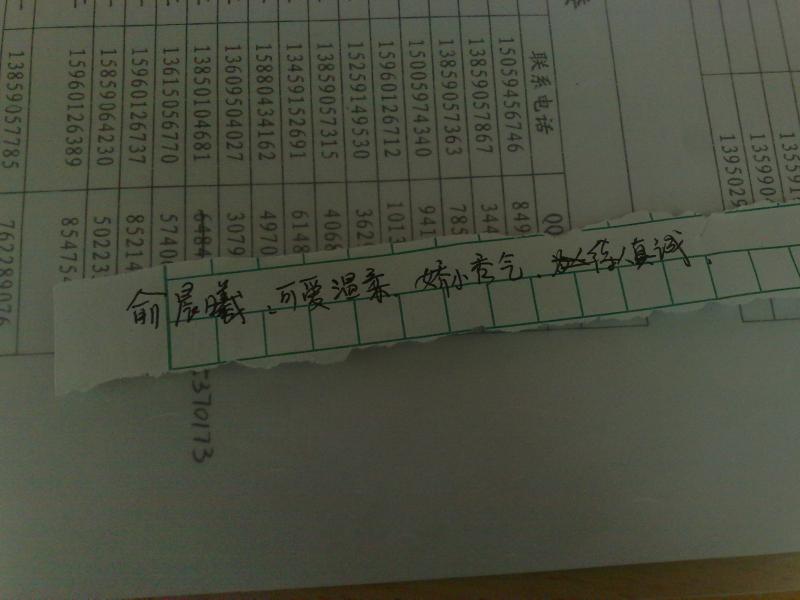 俞晨曦、可爱温柔、娇小秀气、待人真诚.
联系电话 QQ
15059456746 849
13859057867 344
13859057363 785
15005974340 941
15960126712 1013
15259149530 362
13859057315 4068
13459152691 6148
15880434162 4970
13609504027 3079
13850104681 6484 370173
13615056770 5740
15960126737 85214
15859064230 50223
15960126389 854754
13859057785 762289076
135591
1359904
1395029